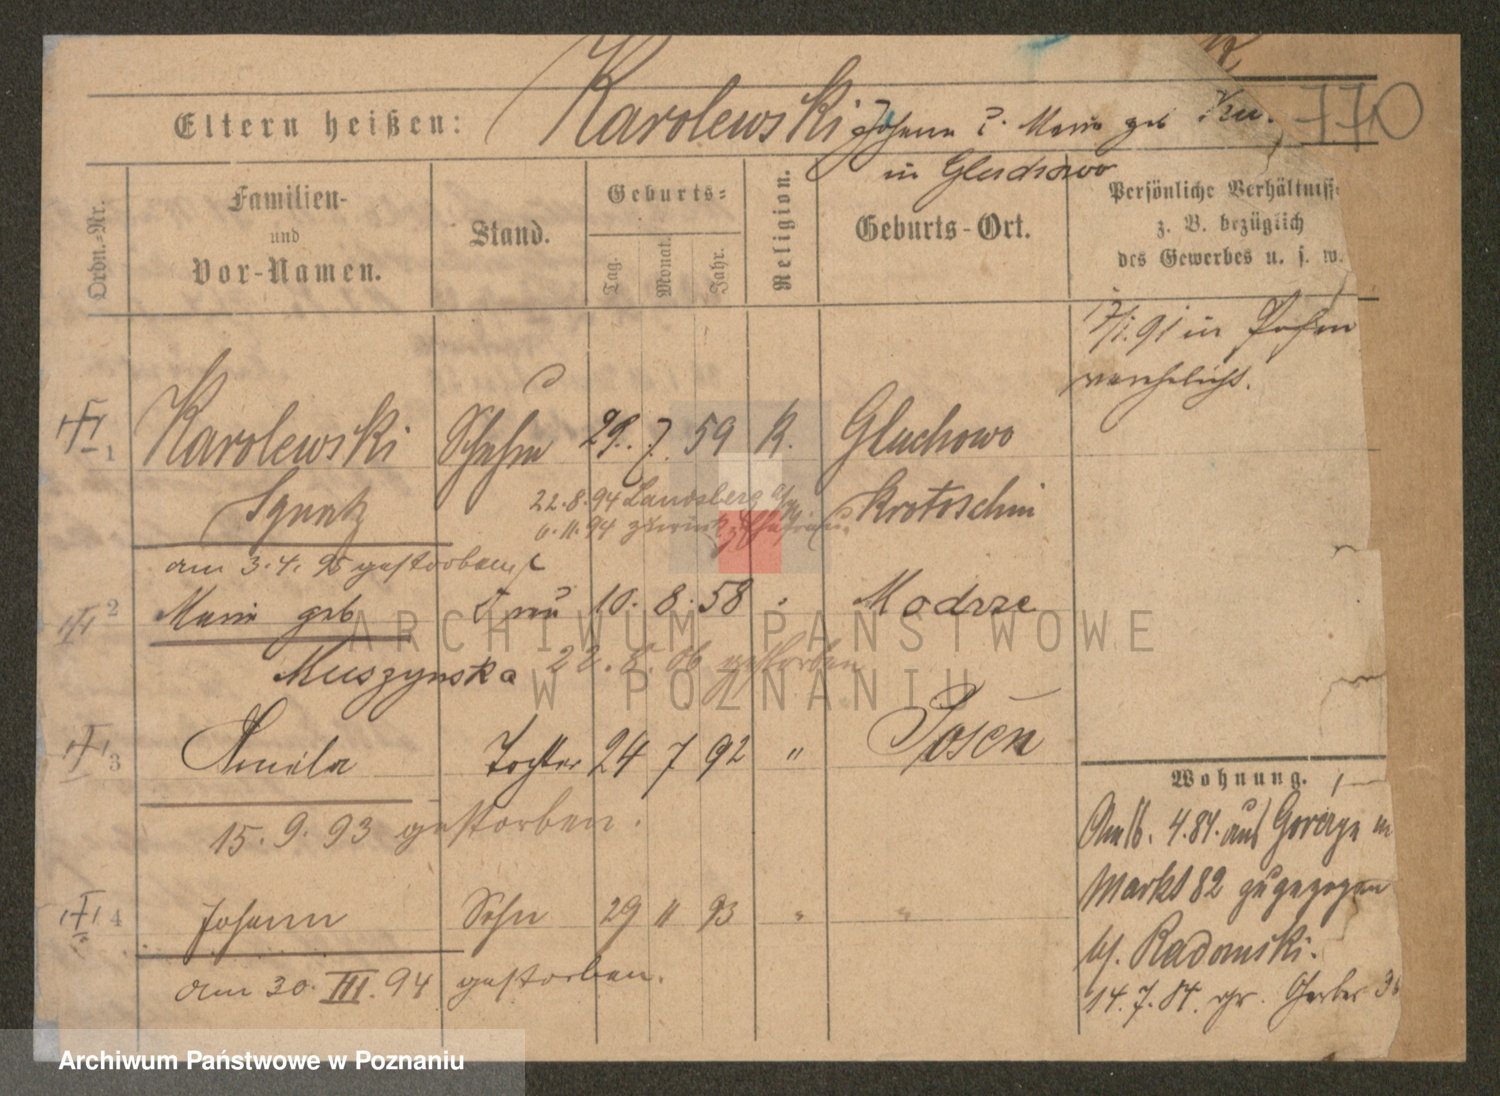 Eltern heißen: Karolewski Johann u. Marie geb
in Gluchowo
Ordn.-Nr.
Familien-
und
Vor-Namen.
Stand.
Geburts-
Tag.
Monat.
Jahr.
Religion.
Geburts-Ort.
Persönliche Verhältniss
z. B. bezüglich
des Gewerbes u. s. w.
17/1. 91 in Posen
verehelicht.
1 Karolewski 29. 7. 59 K. Gluchowo
Ignatz Krotoschin
22.8.94 Landsberg
6.11.94 zurück
am 3.4.95 gestorben
2 Marie geb Frau 10. 8. 58 Modrze
Muszynska 22.8.06 gestorben
3 Amila Tochter 24 7 92 " Posen
15.9.93 gestorben.
4 Johann Sohn 29 11 93 " "
am 30. III. 94 gestorben.
Wohnung.
Am 16. 4.84. aus Gorczyn in
Markt 82 zugezogen
bei Radomski.
14.7.84. gr. Gerber 36
ARCHIWUM PAŃSTWOWE
W POZNANIU
Archiwum Państwowe w Poznaniu